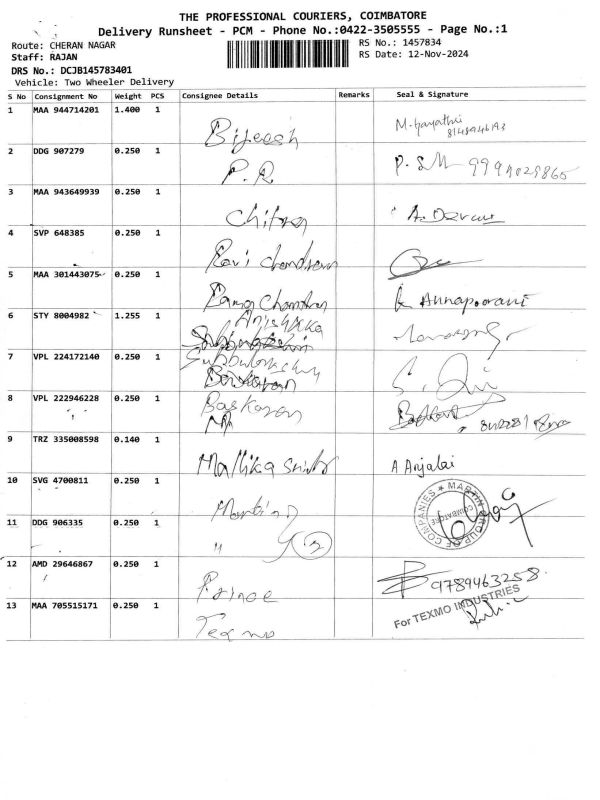 THE PROFESSIONAL COURIERS, COIMBATORE
Delivery Runsheet - PCM - Phone No.:0422-3505555 - Page No.:1
Route: CHERAN NAGAR
RS No.: 1457834
Staff: RAJAN
RS Date: 12-Nov-2024
DRS No.: DCJB145783401
Vehicle: Two Wheeler Delivery
S No Consignment No Weight PCS Consignee Details Remarks Seal & Signature
1 MAA 944714201 1.400 1 Bijeesh M.Gayathri
2 DDG 907279 0.250 1 P.R
3 MAA 943649939 0.250 1 Chitra
4 SVP 648385 0.250 1 Ravi chandran
5 MAA 301443075 0.250 1 Rama Chandran K Annapoorani
6 STY 8004982 1.255 1
7 VPL 224172140 0.250 1 Subbulakshmi
Baskaran
8 VPL 222946228 0.250 1 Baskaran
9 TRZ 335008598 0.140 1 Mallika A Anjalai
10 SVG 4700811 0.250 1 Martin MARTIN GROUP OF COMPANIES COIMBATORE
11 DDG 906335 0.250 1 "
12 AMD 29646867 0.250 1 Prince 9789463258
13 MAA 705515171 0.250 1 Texmo For TEXMO INDUSTRIES